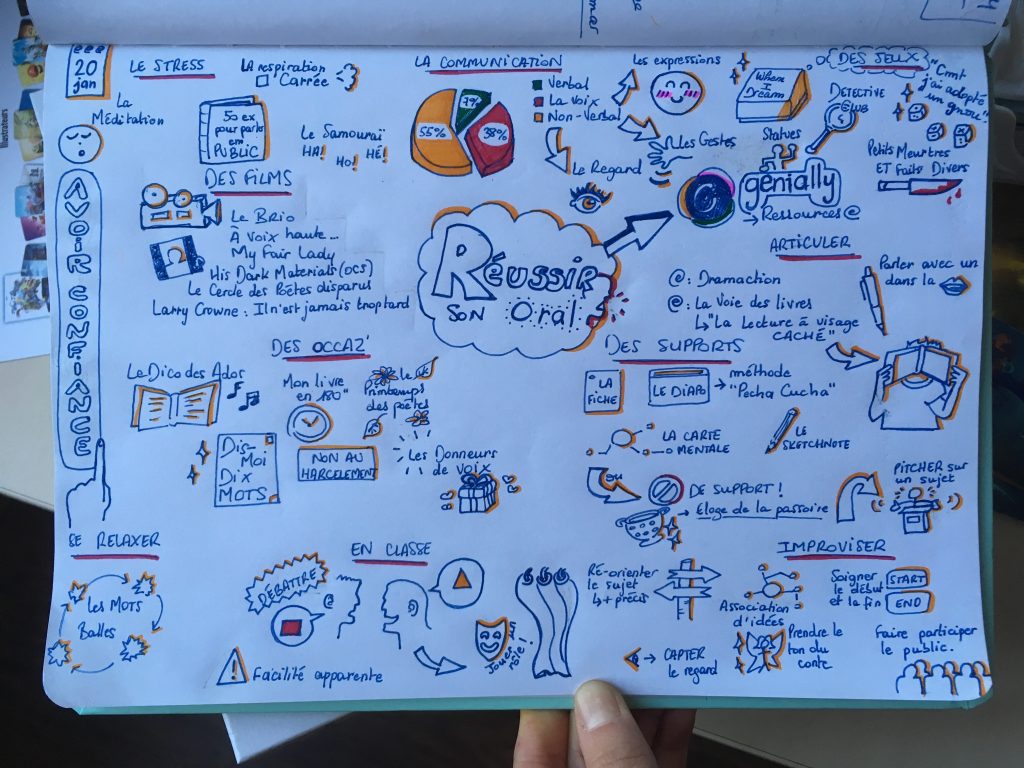 20
jan
LE STRESS
LA respiration
Carrée
La
Méditation
50 ex
pour parler
en
PUBLIC
Le Samouraï
HA!
HO!
HÉ!
AVOIR CONFIANCE
LA COMMUNICATION
Verbal
La voix
Non-Verbal
7%
55%
38%
Les expressions
Les Gestes
Le Regard
DES JEUX
When
I
Dream
DETECTIVE
CLUB
"Cmt
j'ai adopté
un gnou"
Statues
Petits Meurtres
ET Faits Divers
genially
→ Ressources @
DES FILMS
Le Brio
À voix haute...
My Fair Lady
His Dark Materials (OCS)
Le Cercle des Poètes disparus
Larry Crowne : Il n'est jamais trop tard
RÉUSSIR
SON Oral
ARTICULER
@ : Dramaction
@ : La Voie des livres
↳ "La Lecture à visage
CACHÉ"
Parler avec un
dans la
DES OCCAZ'
Le Dico des Ados
Mon livre
en 180"
Le
Printemps
des poètes
Dis-
Moi
Dix
MOTS
NON AU
HARCELEMENT
Les Donneurs
de voix
DES SUPPORTS
LA
FICHE
LE DIAPO
→ méthode
"Pecha Cucha"
LA CARTE
MENTALE
LE
SKETCHNOTE
ou
DE SUPPORT !
→ Eloge de la passoire
PITCHER sur
un sujet
SE RELAXER
Les MOTS
Balles
EN CLASSE
DÉBATTRE
@
Jouer un
rôle !
Facilité apparente
IMPROVISER
RE-orienter
le sujet
↳ + précis
Association
d'idées
Soigner
le début
et la fin
START
END
→ CAPTER
le regard
Prendre le
ton du
conte
Faire participer
le public.